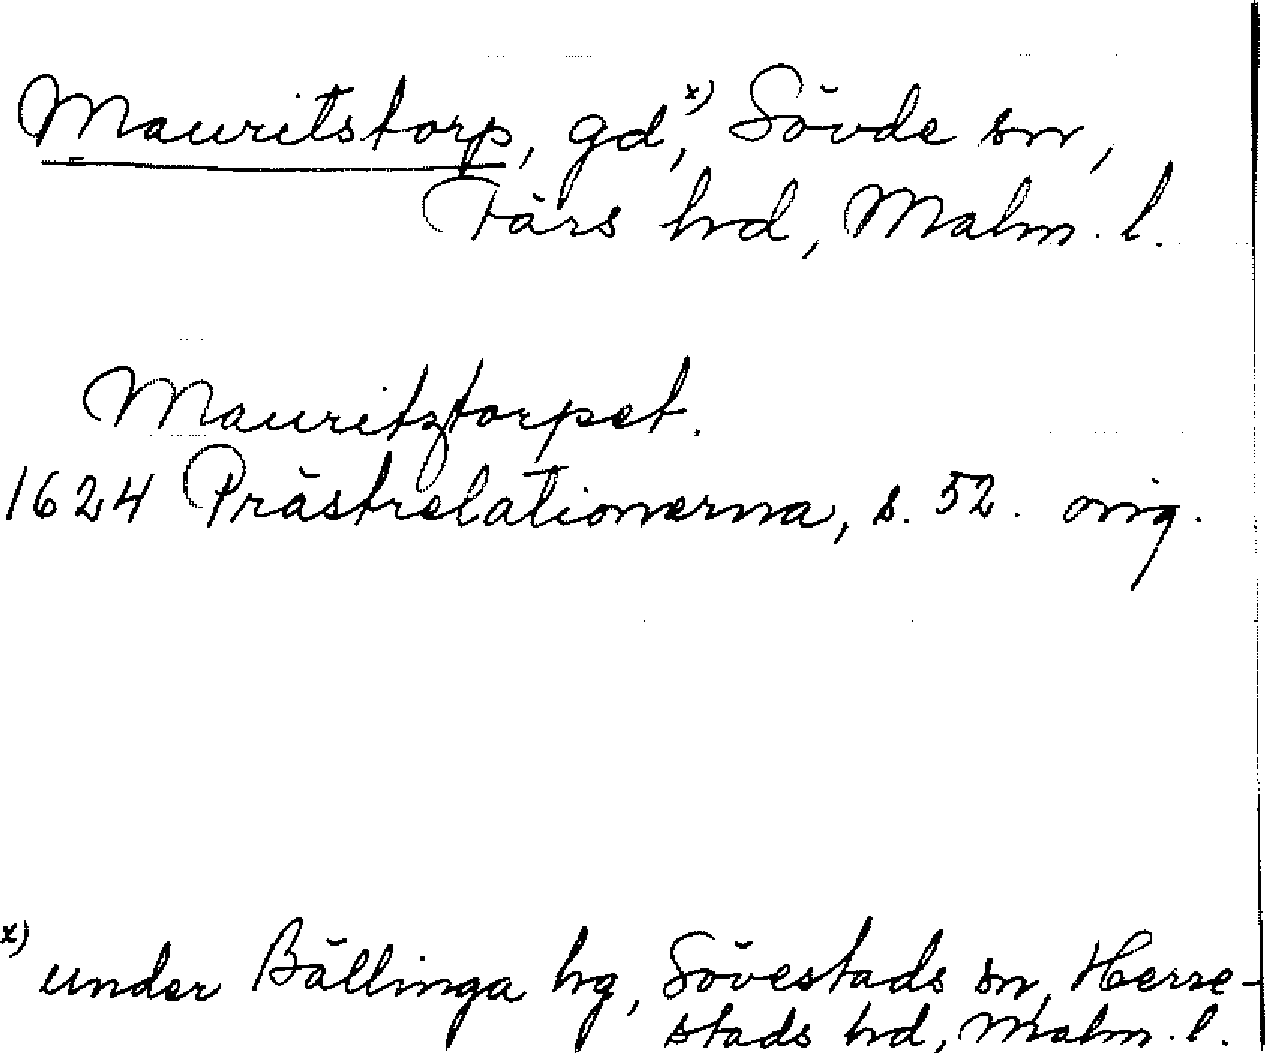 Mauritstorp, gd,x) Sövde sn,
Färs hd, Malm. l.
Mauritztorpet.
1624 Prästrelationerna, s. 52. orig.
x) under Bällinga hg, Sövestads sn, Herre-
stads hd, Malm. l.